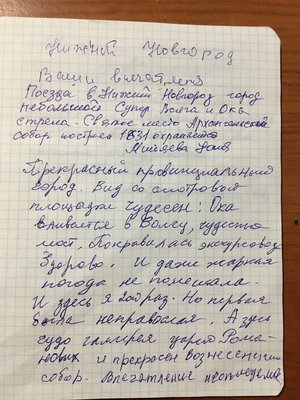 Нижний Новгород
Ваши впечатлея
Поезда в Нижний Новгород город
небольшой Супер Волга и Ока
стрела. Святое место Архангельский
собор построен 1631 охраняется
Митяева
Прекрасный провинциальный
город. Вид со смотровой
площадки чудесен: Ока
вливается в Волгу, чудество
мост, Понравилась экскурсовод
Здорово. И даже жаркая
погода не помешала.
И здесь я 2ой раз. Но первая
была неправослая. А здесь
чудо галлирея царей Рома-
новых и прекрасен Вознесенский
собор. Впечатление